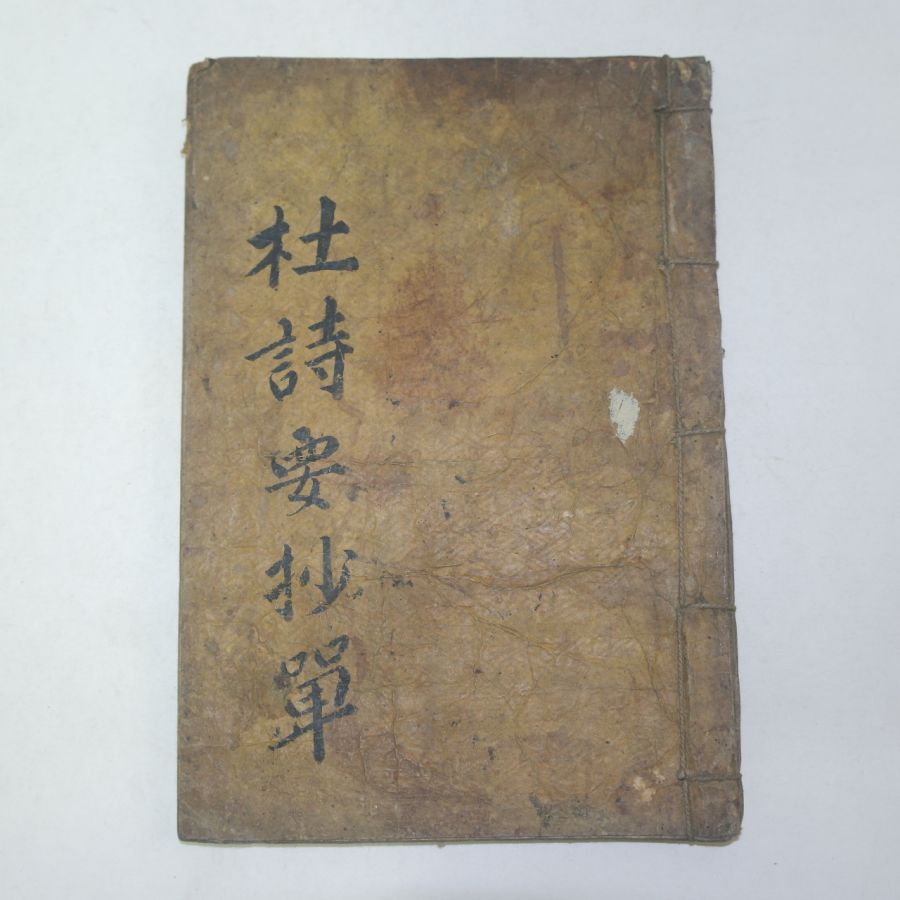 杜詩要抄單